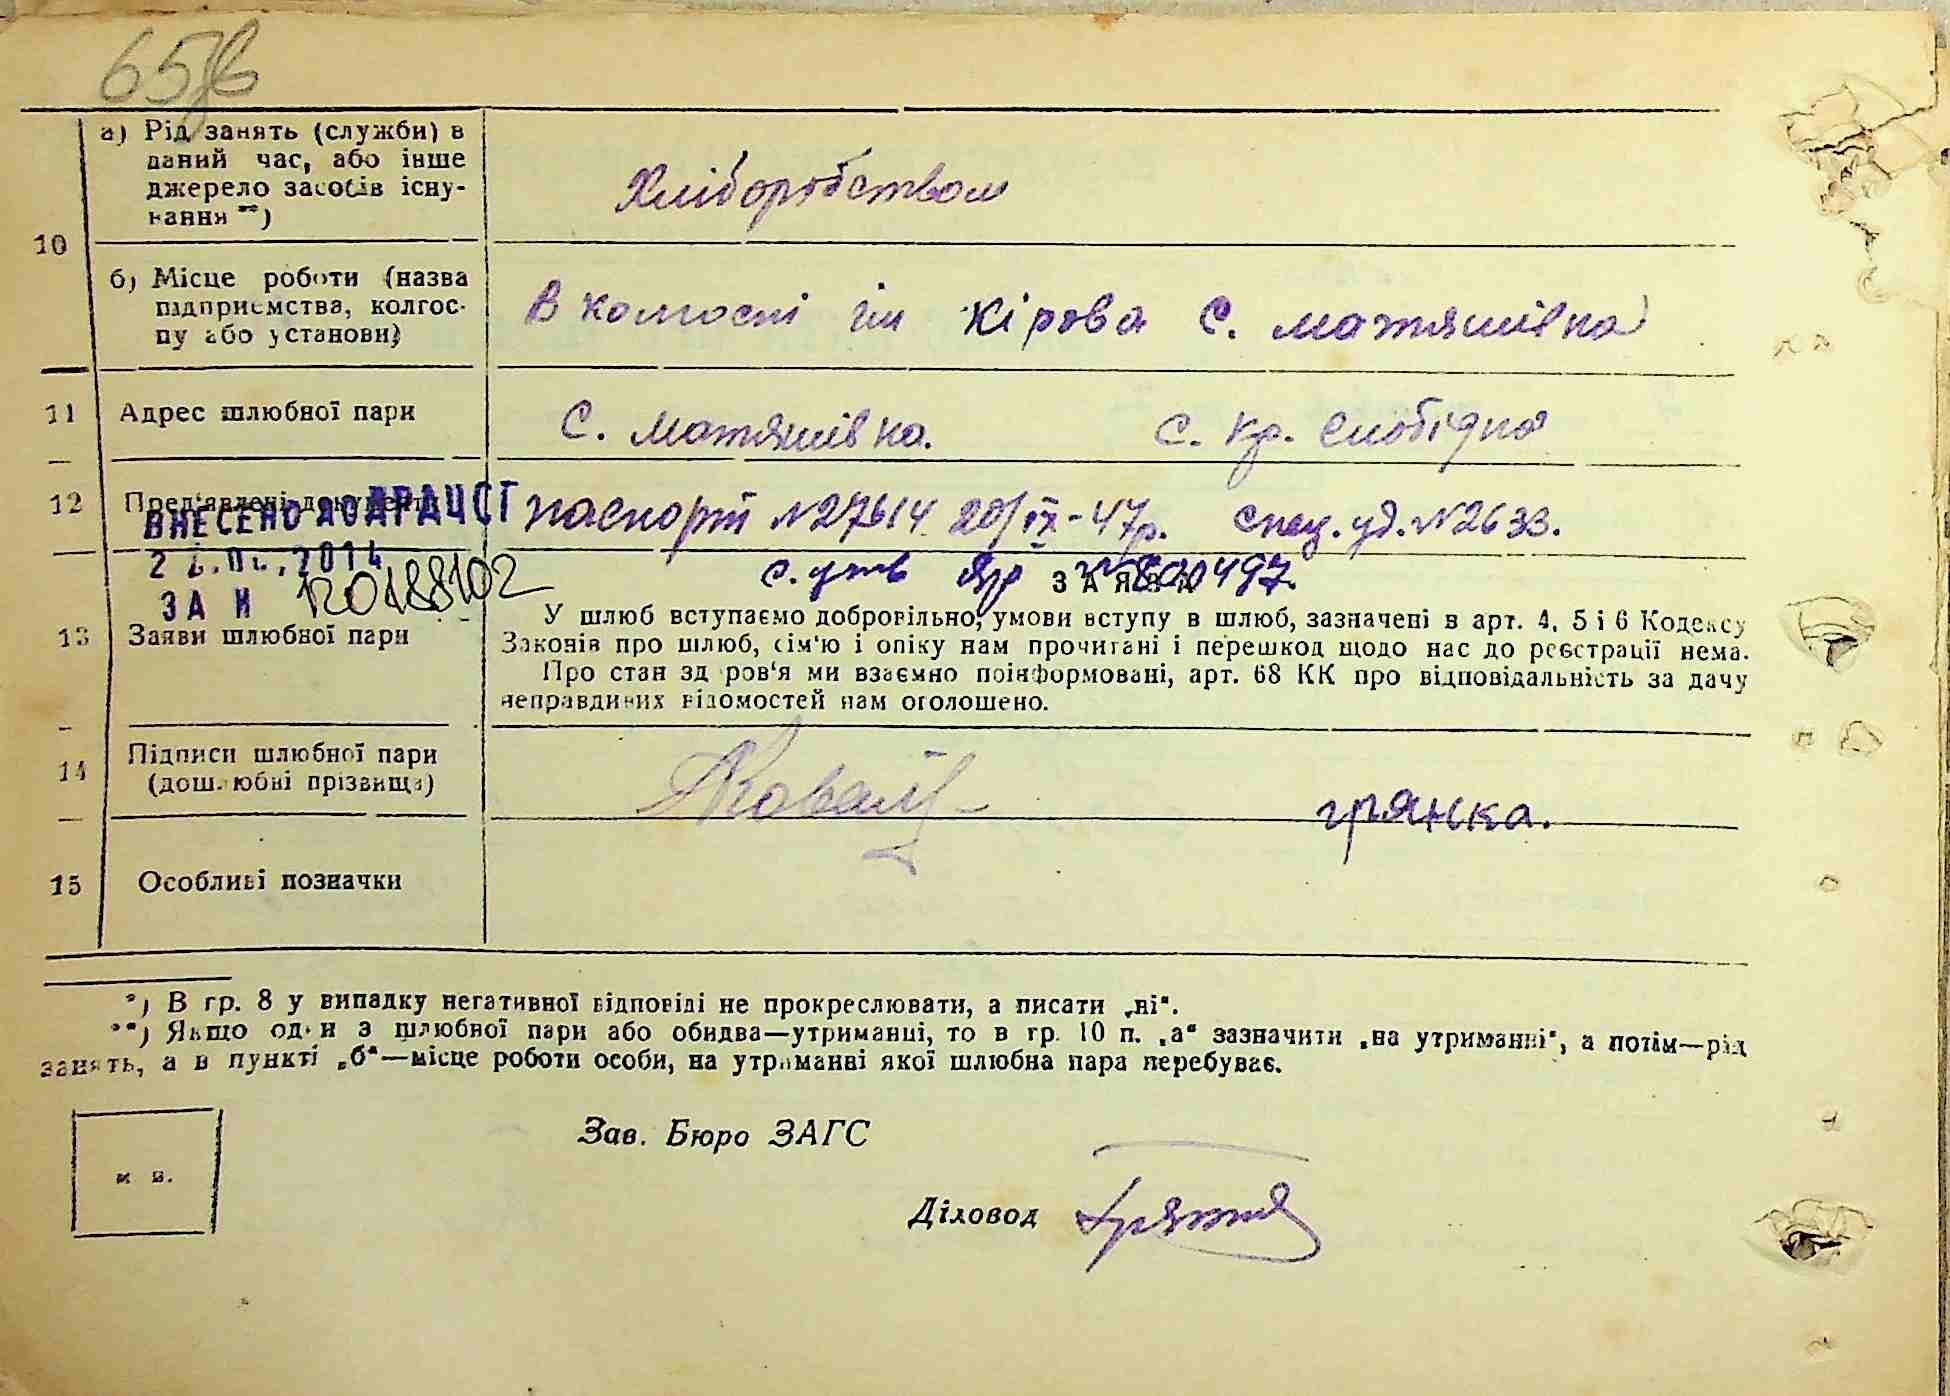 65
10
а) Рід занять (служби) в
даний час, або інше
джерело засобів існу-
вання **)
Хліборобством
б) Місце роботи (назва
підприємства, колгос-
пу або установи)
В колгоспі ім Кірова С. Матяшівка
11
Адрес шлюбної пари
С. Матяшівка.
С. Кр. Слобідка
12
Пред'явлені документи
паспорт №27614 20/IX-47р. спец. уд. №2633.
ВНЕСЕНО ДО ДРАЦСГ
2014
ЗА № 120188102
ЗАЯВА
13
Заяви шлюбної пари
У шлюб вступаємо добровільно; умови вступу в шлюб, зазначені в арт. 4, 5 і 6 Кодексу
Законів про шлюб, сім'ю і опіку нам прочитані і перешкод щодо нас до реєстрації нема.
Про стан здоров'я ми взаємно поінформовані, арт. 68 КК про відповідальність за дачу
неправдивих відомостей нам оголошено.
14
Підписи шлюбної пари
(дошлюбні прізвища)
грянка.
15
Особливі позначки
*) В гр. 8 у випадку негативної відповіді не прокреслювати, а писати „ні“.
**) Якщо один з шлюбної пари або обидва—утриманці, то в гр. 10 п. „а“ зазначити „на утриманні“, а потім—рід
занять, а в пункті „б“—місце роботи особи, на утриманні якої шлюбна пара перебуває.
Зав. Бюро ЗАГС
Діловод